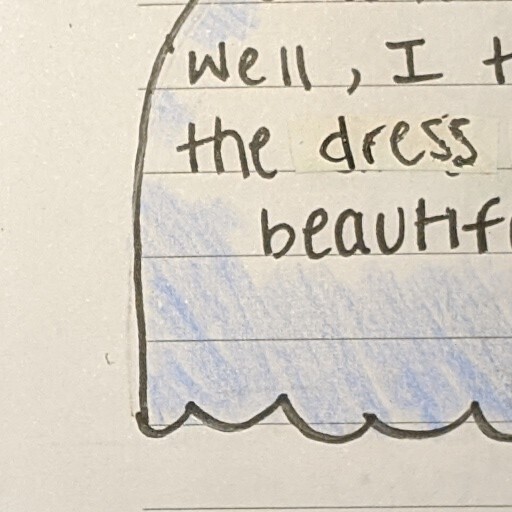 well, I t
the dress
beautif